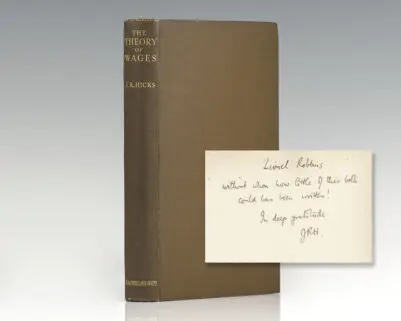 THE
THEORY
OF
WAGES
J.R. HICKS
Lionel Robbins
without whom how little of this book
could have been written!
In deep gratitude
JRH.